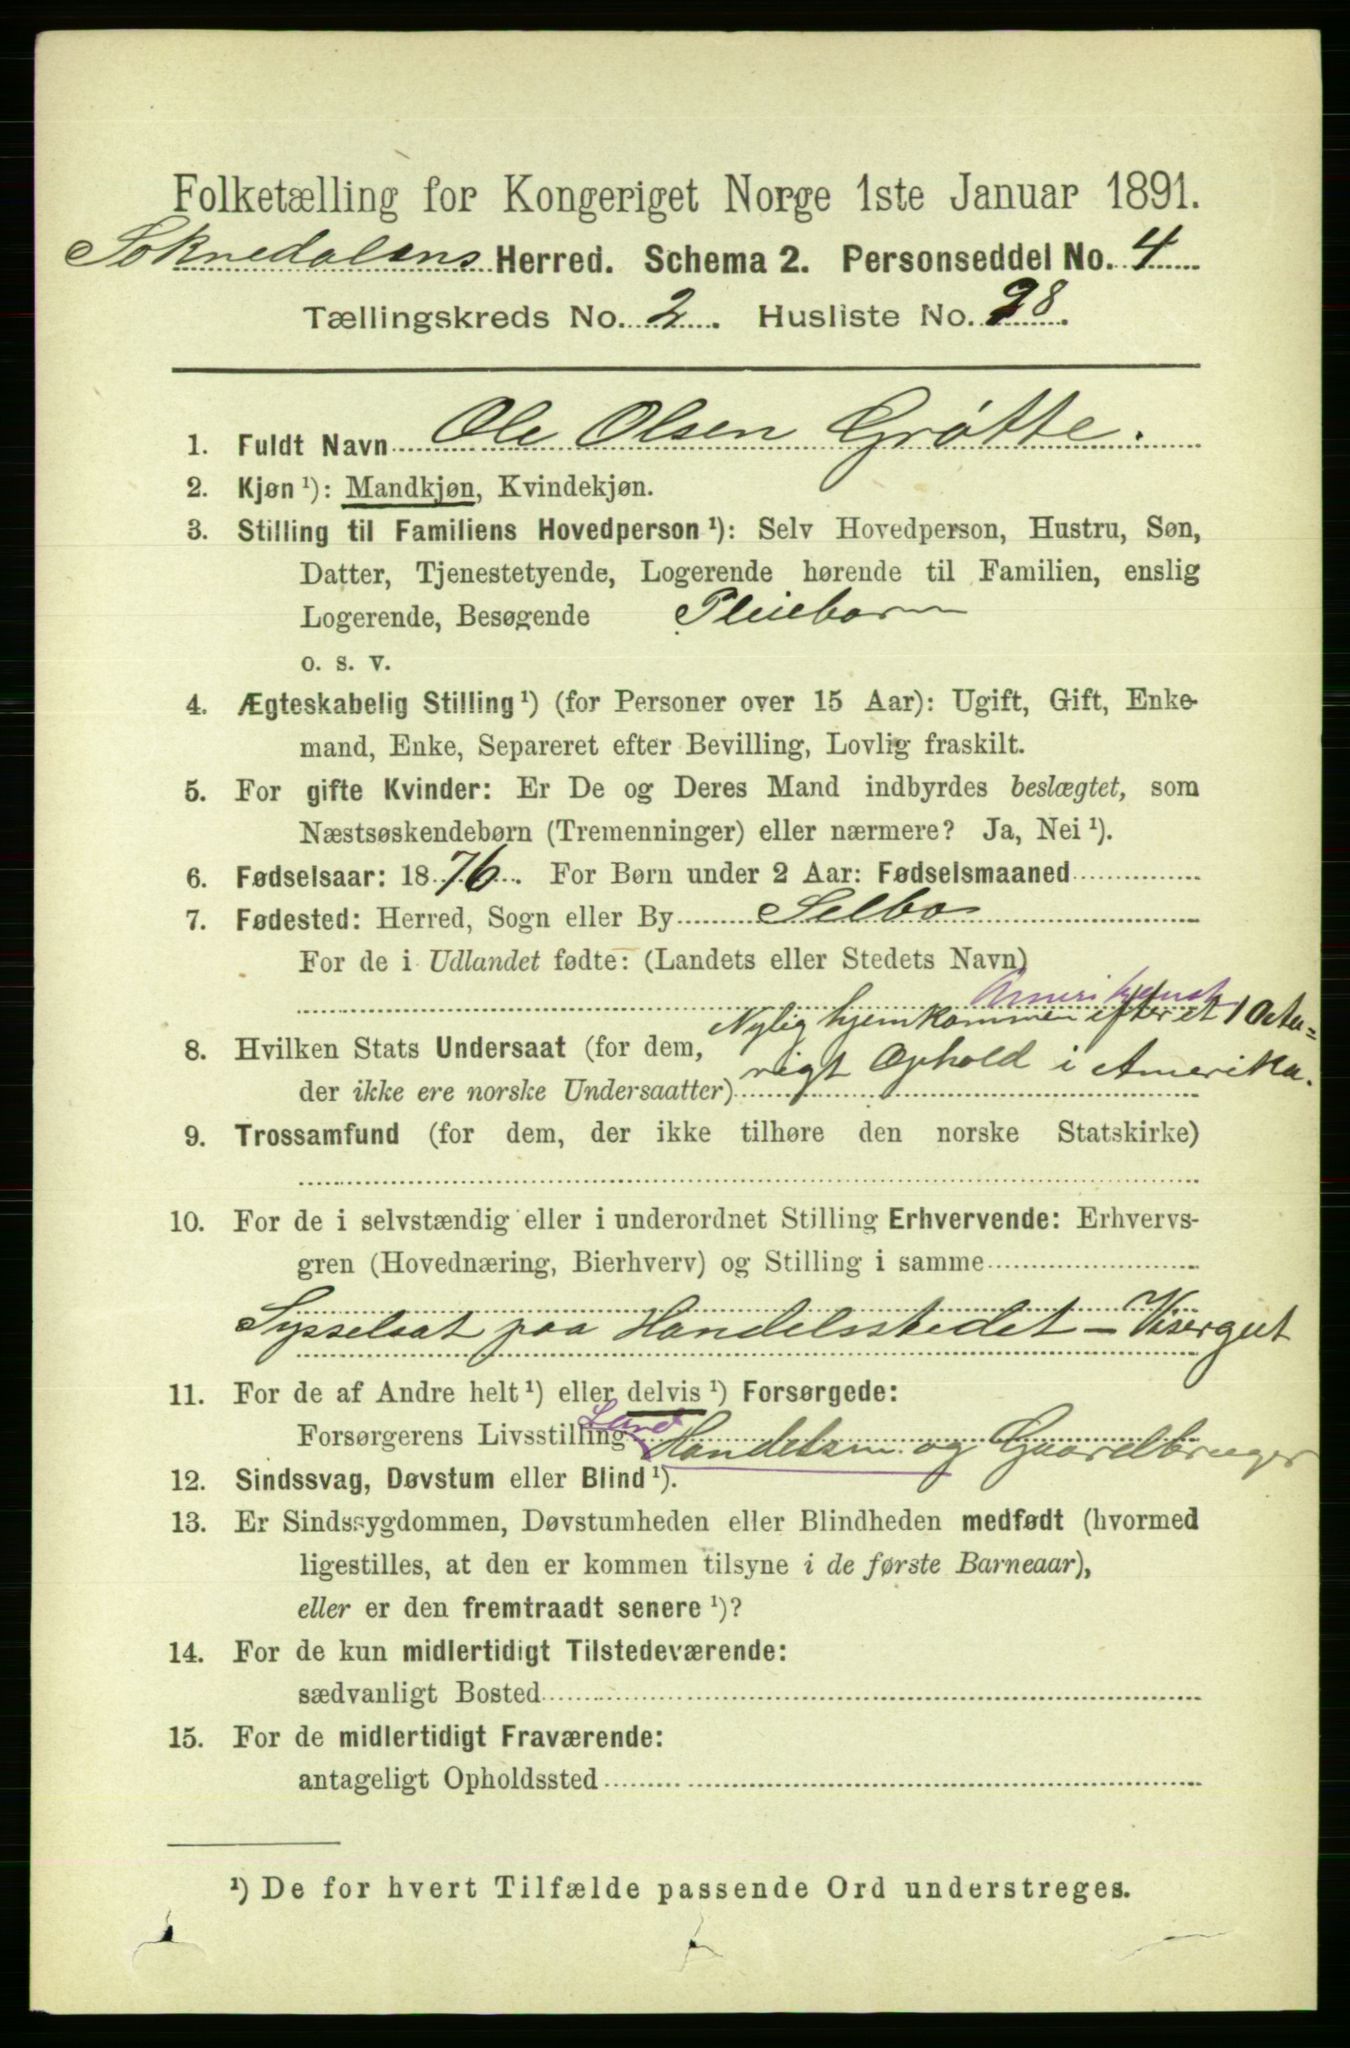 Folketælling for Kongeriget Norge 1ste Januar 1891.
Soknedalens Herred. Schema 2. Personseddel No. 4
Tællingskreds No. 2. Husliste No. 28.
1. Fuldt Navn Ole Olsen Grøtte.
2. Kjøn ¹): Mandkjøn, Kvindekjøn.
3. Stilling til Familiens Hovedperson ¹): Selv Hovedperson, Hustru, Søn,
Datter, Tjenestetyende, Logerende hørende til Familien, enslig
Logerende, Besøgende Pleiebarn
o. s. v.
4. Ægteskabelig Stilling ¹) (for Personer over 15 Aar): Ugift, Gift, Enke-
mand, Enke, Separeret efter Bevilling, Lovlig fraskilt.
5. For gifte Kvinder: Er De og Deres Mand indbyrdes beslægtet, som
Næstsøskendebørn (Tremenninger) eller nærmere? Ja, Nei ¹).
6. Fødselsaar: 1876. For Børn under 2 Aar: Fødselsmaaned
7. Fødested: Herred, Sogn eller By Selbo
For de i Udlandet fødte: (Landets eller Stedets Navn)
Amerikansk
Nylig hjemkommen efter et 1 Aa-
8. Hvilken Stats Undersaat (for dem,
rigt Ophold i Amerika.
der ikke ere norske Undersaatter)
9. Trossamfund (for dem, der ikke tilhøre den norske Statskirke)
10. For de i selvstændig eller i underordnet Stilling Erhvervende: Erhvervs-
gren (Hovednæring, Bierhverv) og Stilling i samme
Sysselsat paa Handelsstedet - Visergut
11. For de af Andre helt ¹) eller delvis ¹) Forsørgede:
Land
Forsørgerens Livsstilling Handelsm. og Gaardbruger
12. Sindssvag, Døvstum eller Blind ¹).
13. Er Sindssygdommen, Døvstumheden eller Blindheden medfødt (hvormed
ligestilles, at den er kommen tilsyne i de første Barneaar),
eller er den fremtraadt senere ¹)?
14. For de kun midlertidigt Tilstedeværende:
sædvanligt Bosted
15. For de midlertidigt Fraværende:
antageligt Opholdssted
¹) De for hvert Tilfælde passende Ord understreges.